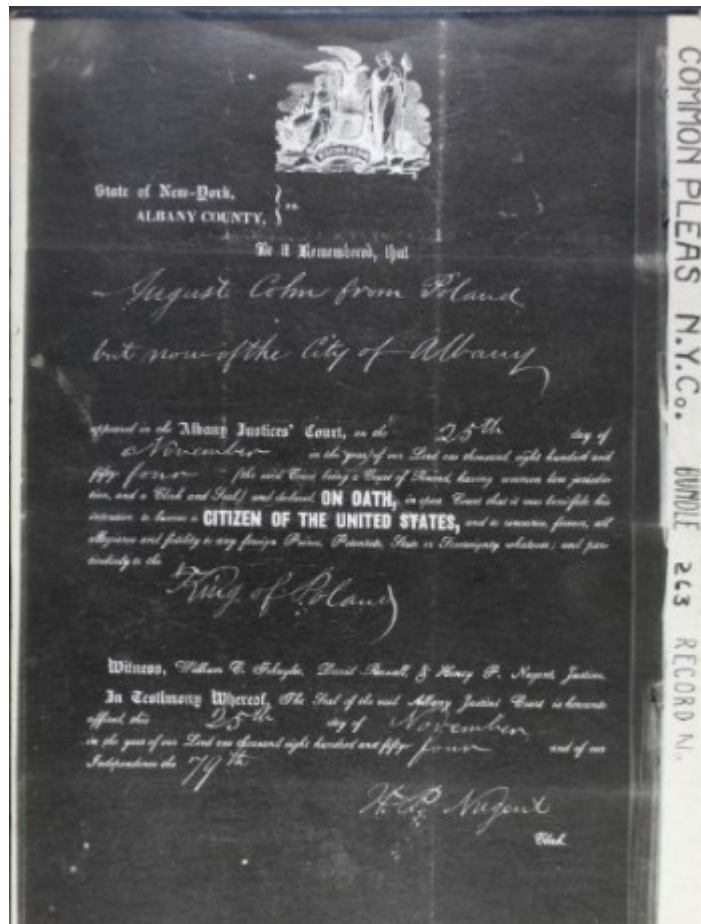 EXCELSIOR
State of New-York,
ALBANY COUNTY, } ss.
Be it Remembered, that
August Cohn from Poland
but now of the City of Albany
appeared in the Albany Justices' Court, on the 25th day of
November in the year of our Lord one thousand eight hundred and
fifty four (the said Court being a Court of Record, having common law jurisdic-
tion, and a Clerk and Seal,) and declared ON OATH, in open Court that it was bona fide his
intention to become a CITIZEN OF THE UNITED STATES, and to renounce, forever, all
allegiance and fidelity to any foreign Prince, Potentate, State or Sovereignty whatever; and par-
ticularly to the
King of Poland
Witness, William C. David & Henry P. Nugent, Justices
In Testimony Whereof, The Seal of the said Albany Justices' Court is hereunto
affixed, this 25th day of November
in the year of our Lord one thousand eight hundred and fifty four and of our
Independence the 79th
H. P. Nugent
Clerk.
COMMON PLEAS N.Y.Co. BUNDLE 263 RECORD N.